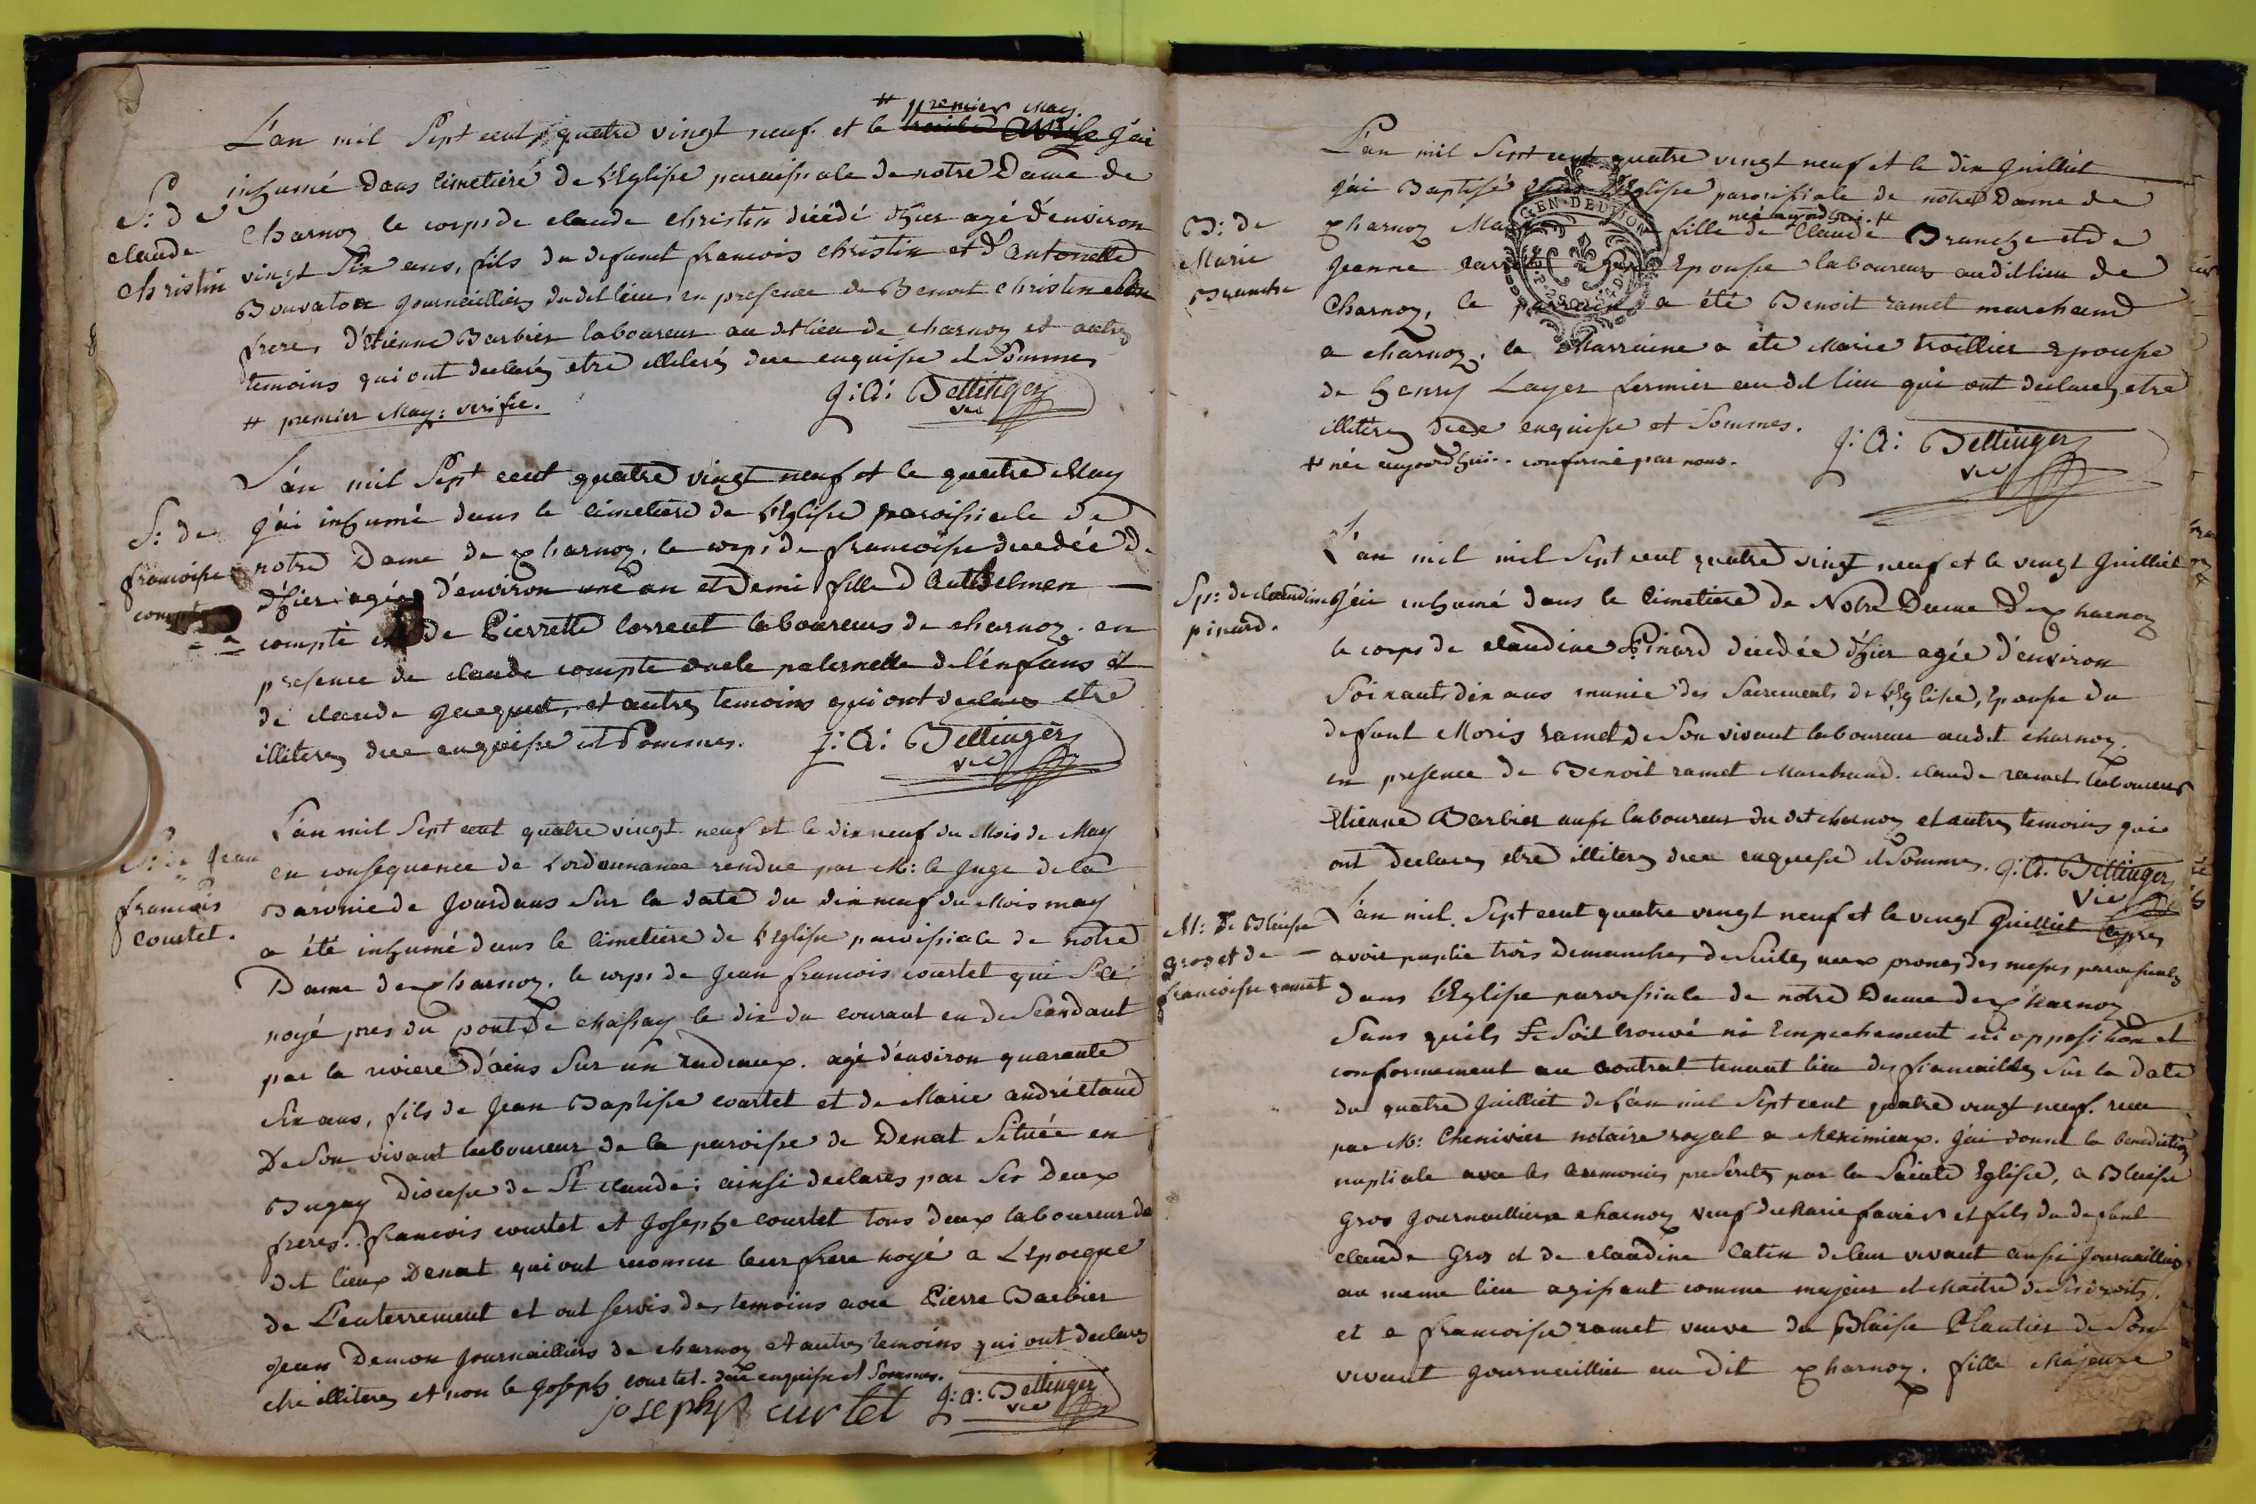 L'an mil Sept cent quatre vingt neuf. et le # premier May j'ai
inhumé dans cimetiere de l'Eglise paroissiale de notre Dame de
S: de
claude
christin
Charnoz le corps de claude christin décédé d'hier agé d'environ
vingt Six ans, fils du defunct francois christin et d'antoinette
Bouvaton journaillier du dit lieu, en presence de Benoit christin son
frere, d'Etienne Barbier laboureur au dit lieu de charnoz et autres
temoins qui ont declarés etre illiterés dee enquise et Sommes
# premier May: verifie.
J: A: Bettinger
vic
L'an mil Sept cent quatre vingt neuf et le quatre May
S: de
francoise
compte
j'ai inhumé dans le cimetiere de l'Eglise paroissiale de
notre Dame de charnoz. le corps de francoise decedée de
d'hier agée d'environ une an et demi fille d'Anthelmen
compte et de Pierrette lorreut laboureurs de charnoz. en
presence de claude compte oncle paternelle de l'enfans et
de claude jacquet, et autres temoins qui ont declares etre
illiteres dee enquise et Sommes.
J: A: Bettinger
vic
L'an mil Sept cent quatre vingt neuf et le dix neuf du Mois de May
S: de Jean
francois
Courtet.
en consequence de L'ordonnance rendue par M: le Juge de la
Baronie de Jourdans Sur la date du dix neuf du Mois may
a été inhumé dans le cimetiere de l'Eglise paroissiale de notre
Dame de charnoz, le corps de Jean francois courtet qui S'e
noyé pres du pont de chassay le dix du courant en descendant
par la riviere d'ains Sur un radeaux. agé d'environ quarante
Six ans, fils de Jean Baptise courtet et de Marie andréétand
De Son vivant laboureur de la paroisse de Denat Située en
Bugay Diocese de St claude; ainsi declares par Ses Deux
freres. francois courtet et Josephe courtet tous deux laboureur du
dit lieux Denat qui ont reconnu leur frere noyé a L'epoeque
de L'enterrement et ont servis des temoins avec Pierre Barbier
Jean Demon journailliers de charnoz et autres temoins qui ont declares
etre illiteres et non le Joseph courtet. dee enquise et Sommes.
joseph curtet
J: A: Bettinger
vic
L'an mil Sept cent quatre vingt neuf et le dix Juilliet
B: de
Marie
Branche
j'ai Baptisé dans l'Eglise paroissiale de notre Dame de
charnoz Marie née aujourd'hui # fille de Claude Branche et de
Jeanne Epouse laboureur audit lieu de
GEN. DE DIJON
Charnoz, le parrain a été Benoit ramet marchand
a charnoz. la Marraine a été Marie troillier Epouse
de henry Layer fermier au dit lieu qui ont declares etre
illiteres dee enquise et Sommes.
# née aujourd'hui. confirmé par nous.
J: A: Bettinger
vic
L'an mil mil Sept cent quatre vingt neuf et le vingt Juilliet
Sp: de claudine
pinard.
j'ai inhumé dans le cimetiere de Notre Dame de charnoz
le corps de claudine Pinard decedée d'hier agée d'environ
Soixante dix ans munie des Sacrements de l'Eglise, Epouse du
defunt Moris ramet de Son vivant laboureur audit charnoz.
en presence de Benoit ramet Marchand. claude ramet laboureur
Etienne Barbier aussi laboureur du dit charnoz et autres temoins qui
ont declares etre illiteres dee enquise et Sommes. J: A: Bettinger
vic
M: de Blaise
gros et de
francoise ramet
L'an mil Sept cent quatre vingt neuf et le vingt Juilliet apres
avoir puplié trois Demanches de Suites aux prones des messes paroissiales
dans l'Eglise paroissiale de notre Dame de charnoz
Sans qu'ils Se Soit trouvé ni Empechement ni opposition et
conformement au contrat tenant lieu des fiancailles Sur la date
du quatre Juilliet de l'an mil Sept cent quatre vingt neuf. recu
par M: Chenivier notaire royal a Meximieux. j'ai donné la benediction
nuptiale avec les ceremonies prescrites par la Sainte Eglise, a Blaise
Gros Journaillier a charnoz veuf de Marie favier et fils du defunt
claude Gros et de claudine Catin de leur vivant aussi Journaillier
au meme lieu agissant comme majeur et Maitre de Ses droits,
et a francoise ramet veuve du Blaise Plantier de Son
vivant journaillier au dit charnoz. fille Majeure